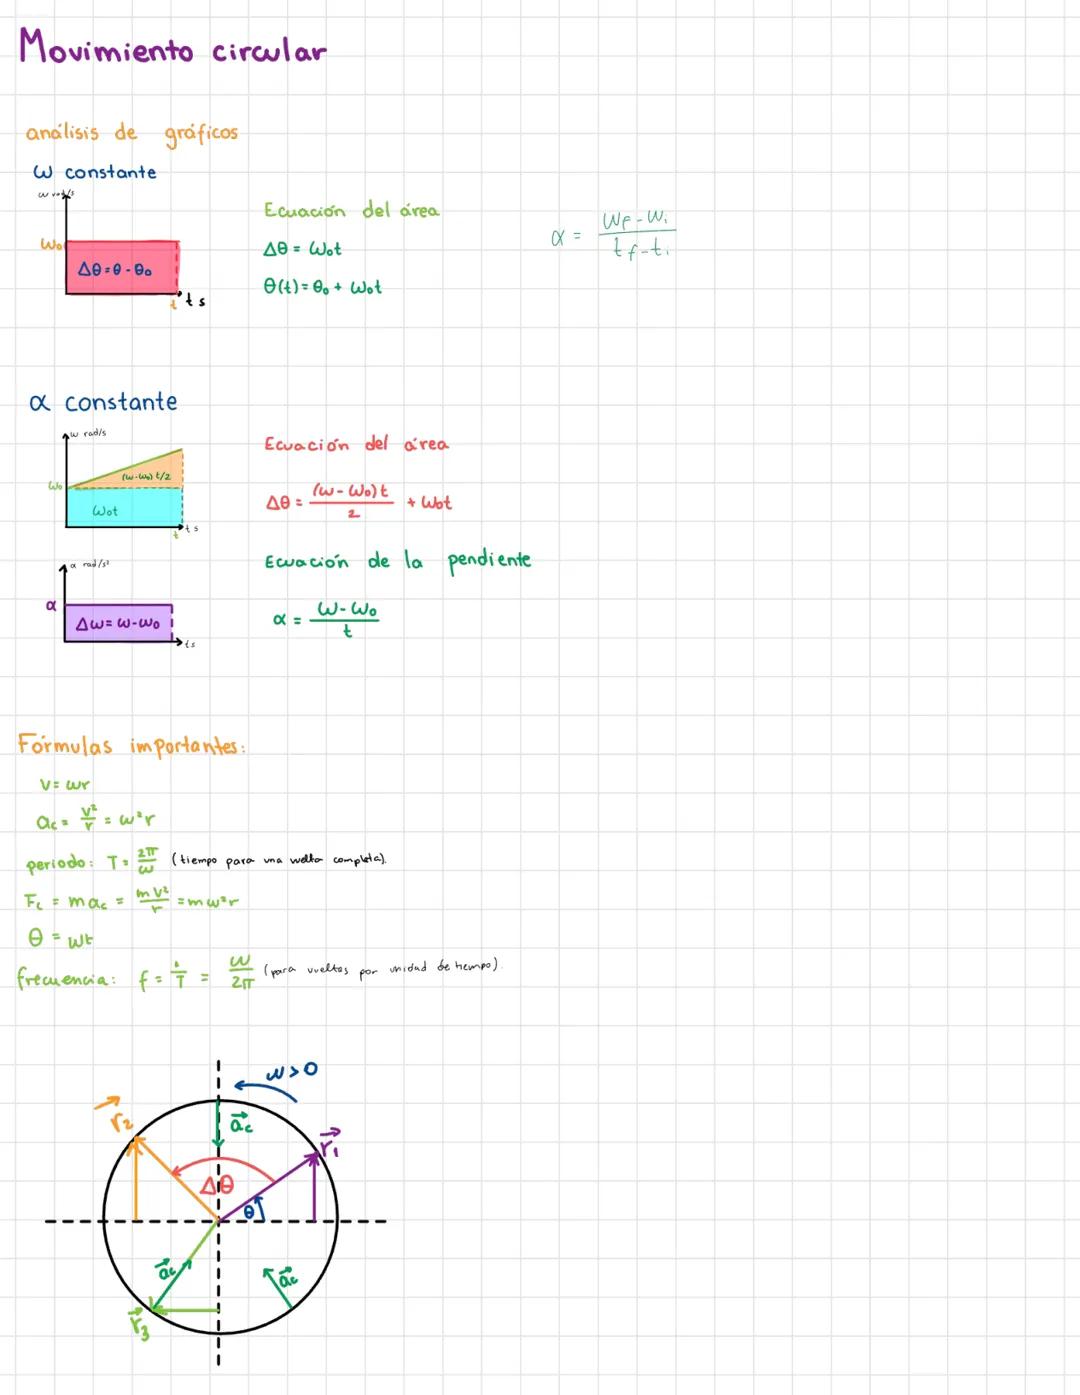 Movimiento circular
análisis de gráficos
ω constante
ω rad/s
ω₀
Δθ = θ - θ₀
t
t s
Ecuación del área
Δθ = ω₀t
θ(t) = θ₀ + ω₀t
α = (ωf - ωi) / (tf - ti)
α constante
ω rad/s
ω₀
(ω-ω₀) t/2
ω₀t
t
t s
Ecuación del área
Δθ = (ω - ω₀)t / 2 + ω₀t
α rad/s²
α
Δω = ω-ω₀
t s
Ecuación de la pendiente
α = (ω - ω₀) / t
Fórmulas importantes:
v = ωr
ac = v²/r = ω²r
periodo: T = 2π/ω (tiempo para una vuelta completa).
Fc = mac = mv²/r = mω²r
θ = ωt
frecuencia: f = 1/T = ω/2π (para vueltas por unidad de tiempo).
ω > 0
r₂
ac
r₁
Δθ
θ
ac
ac
r₃